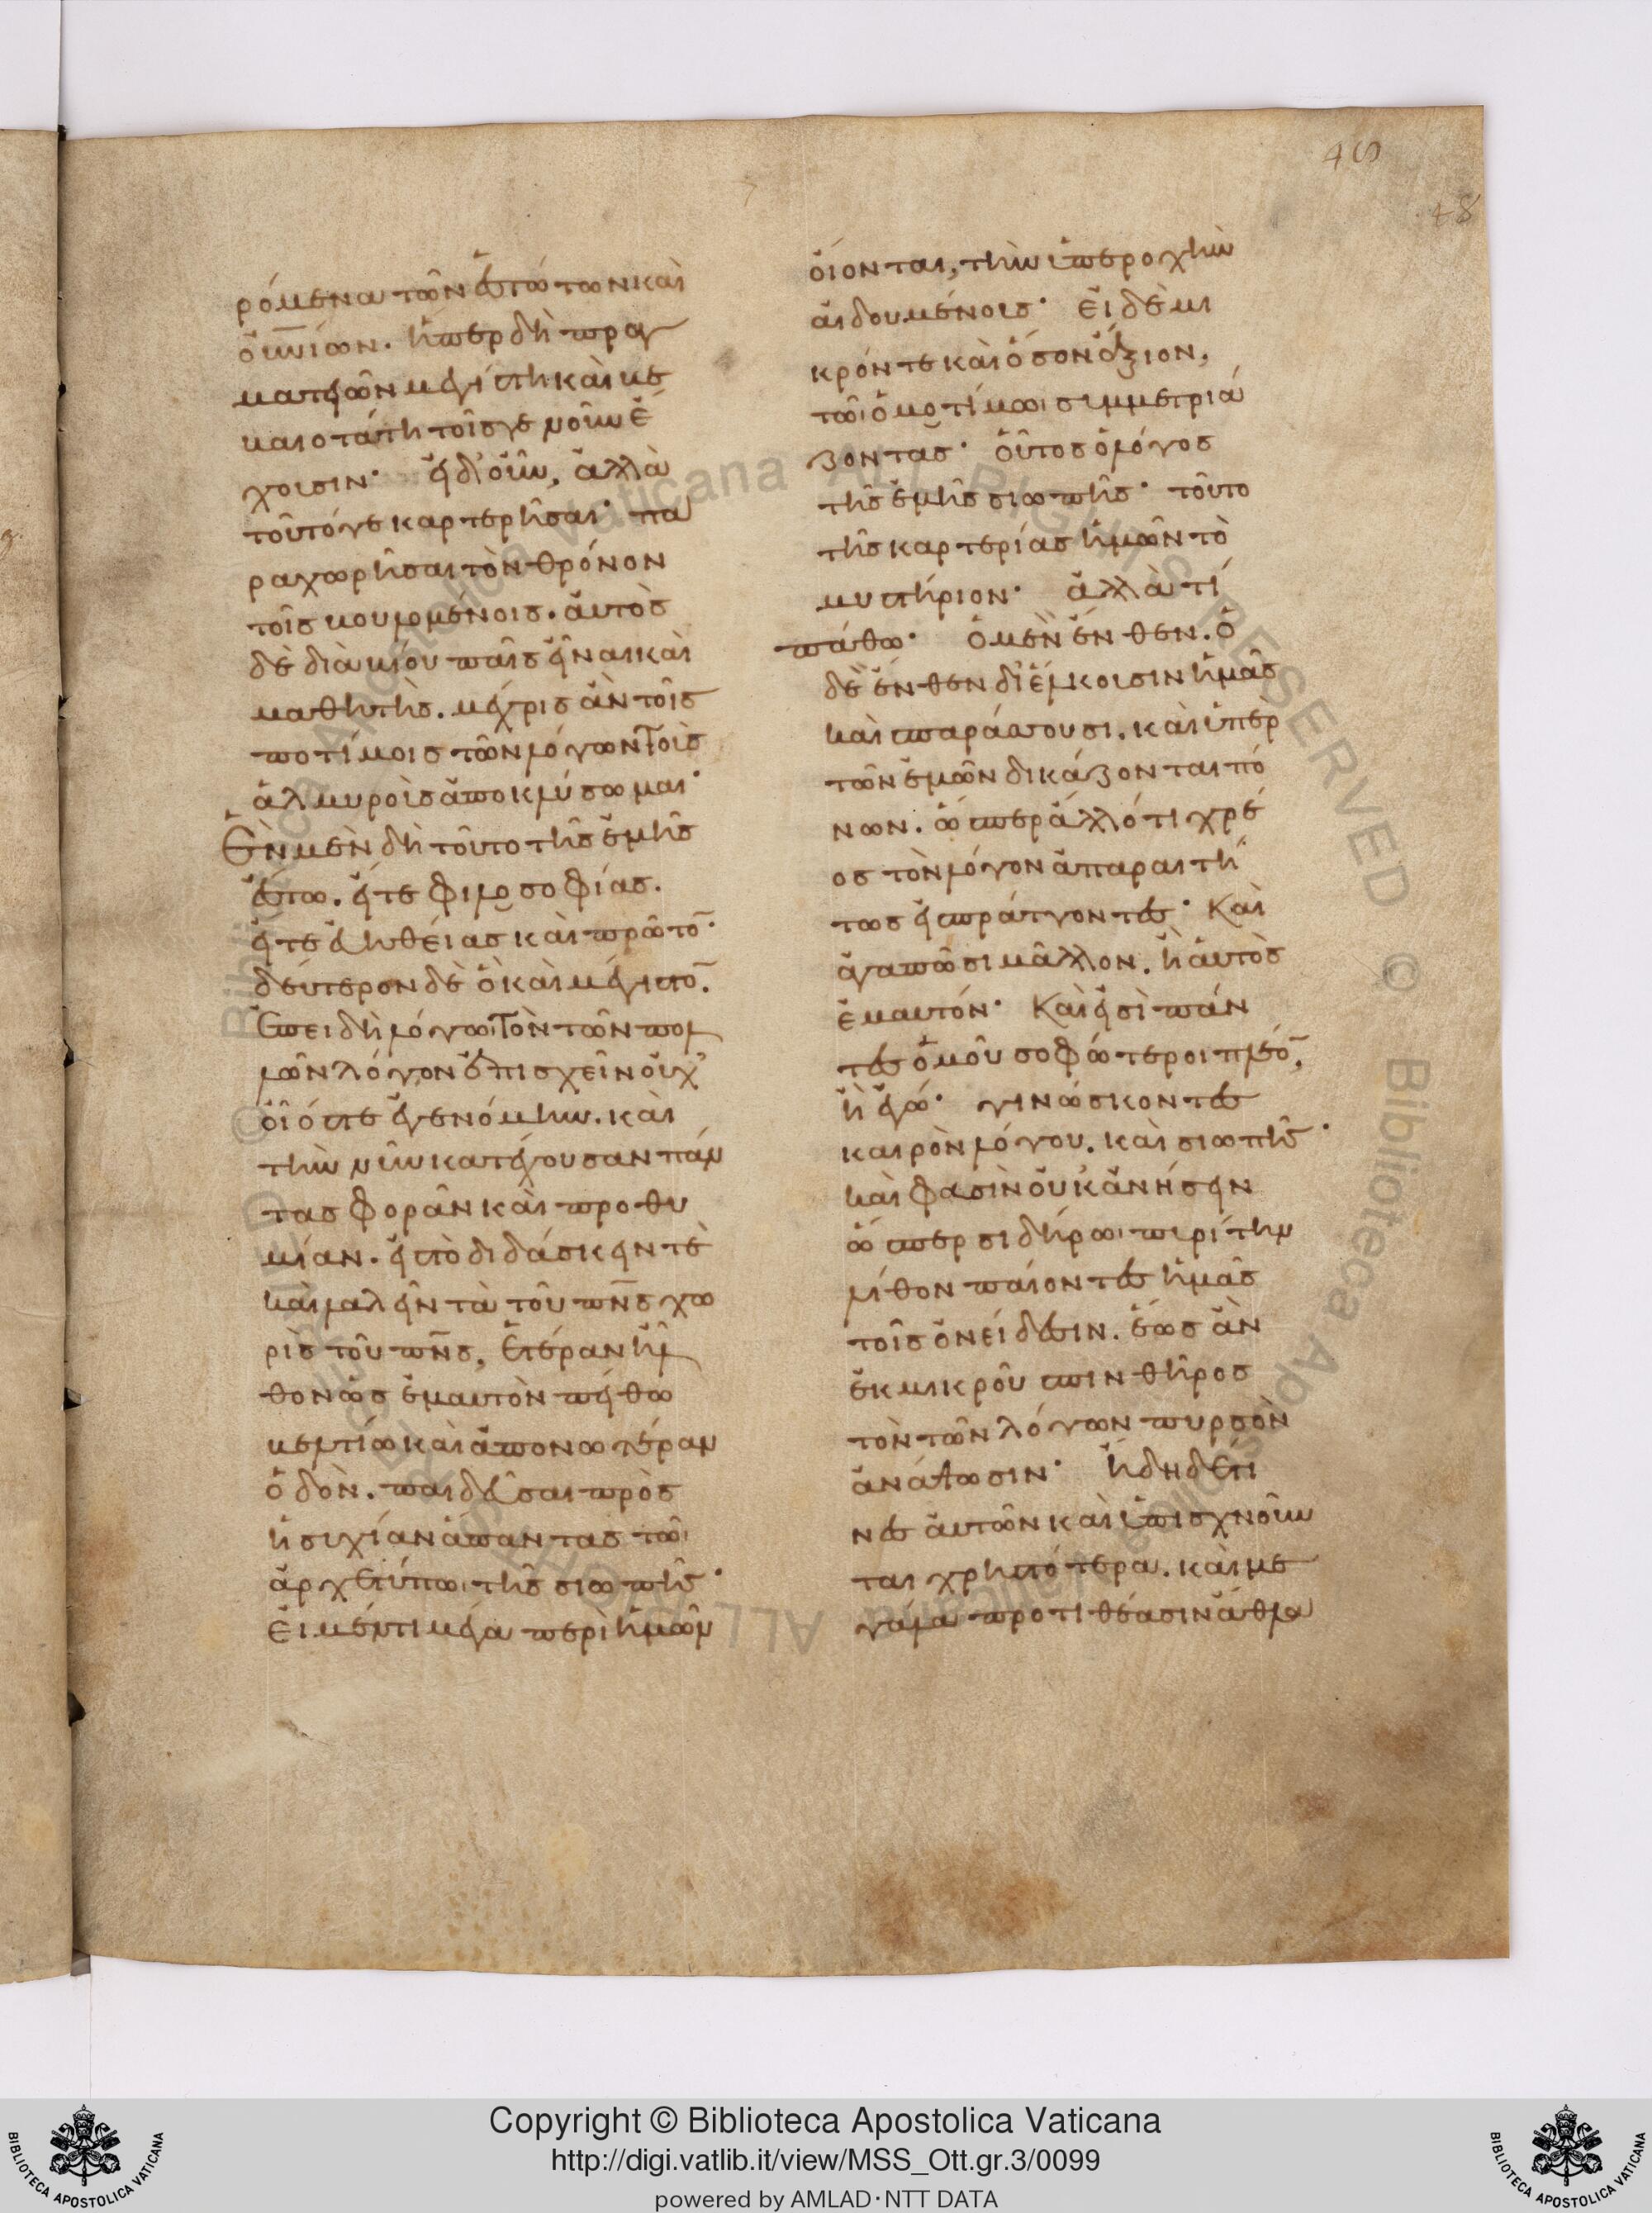 46
48
ρόμενα τῶν ἐσχάτων καὶ
οὐρανίων. ἥπερ δὴ πραγ
ματειῶν μεγίστη καὶ κε
καιοτάτη τοῖς γε νοῦν ἔ
χουσιν· εἰ δ' οὖν, ἀλλὰ
τοῦτό γε καρτερῆσαι· πα
ραχωρῆσαι τὸν θρόνον
τοῖς βουλομένοις. αὐτὸς
δὲ διὰ βίου παῖς εἶναι καὶ
μαθητὴς. μέχρις ἂν τοῖς
ποτίμοις τῶν λόγων τοὺς
ἁλμυροὺς ἀποκλύσωμαι·
Ἓν μὲν δὴ τοῦτο τῆς ἐμῆς
εἴτω. εἴτε φιλοσοφίας.
εἴτε ἀληθείας καὶ πρῶτον·
δεύτερον δὲ ὃ καὶ μέγιστον.
Ἐπειδὴ λόγωι τὸν τῶν πολ
λῶν λόγον ἐπισχεῖν οὐχ
οἷός τε ἐγενόμην. καὶ
τὴν νῦν κατέχουσαν πάν
τας φορὰν καὶ προθυ
μίαν. εἰς τὸ διδάσκειν τε
καὶ λαλεῖν τὰ τοῦ πνς χω
ρὶς τοῦ πνς, ἑτέραν ἦλ
θον ὡς ἐμαυτὸν πείθω
βελτίω καὶ ἀπονωτέραν
ὁδὸν. παιδεῦσαι πρὸς
ἡσυχίαν ἅπαντας τῶι
ἀρχετύπωι τῆς σιωπῆς·
εἰ μέν τι μέγα περὶ ἡμῶν
οἴονται, τὴν ὑπεροχὴν
αἰδουμένοις· εἰ δὲ μι
κρόν τε καὶ ὅσον ἄξιον,
τῶι ὁμοτίμωι συμμετριά
ζοντας· οὗτος ὁ λόγος
τῆς ἐμῆς σιωπῆς· τοῦτο
τῆς καρτερίας ἡμῶν τὸ
μυστήριον· ἀλλὰ τί
πάθω· ὁ μὲν ἔνθεν. ὁ
δὲ ἔνθεν διέλκουσιν ἡμᾶς
καὶ σπαράσσουσι. καὶ ὑπὲρ
τῶν ἐμῶν δικάζονται πό
νων. ὥσπερ ἄλλό τι χρέ
ος τὸν λόγον ἀπαραιτή
τως εἰσπράττοντες· Καὶ
ἀγαπῶσι μᾶλλον. ἢ αὐτὸς
ἐμαυτόν· Καὶ εἰσὶ πάν
τες ὁμοῦ σοφώτεροι πλέον,
ἢ ἐγώ· γινώσκοντες
καιρὸν λόγου. καὶ σιωπῆς·
καὶ φασὶν οὐκ ἀνήσειν
ὥσπερ σιδήρωι πυρίτην
λίθον παίοντες ἡμᾶς
τοῖς ὀνείδεσιν. ἕως ἂν
ἐκ μικροῦ σπινθῆρος
τὸν τῶν λόγων πυρσὸν
ἀνάψωσιν· ἤδη δέ τι
νες αὐτῶν καὶ ὑπισχνοῦν
ται χρηστότερα. καὶ με
γάλα προτιθέασιν ἆθλα
Copyright © Biblioteca Apostolica Vaticana
http://digi.vatlib.it/view/MSS_Ott.gr.3/0099
powered by AMLAD·NTT DATA
BIBLIOTECA APOSTOLICA VATICANA
BIBLIOTECA APOSTOLICA VATICANA